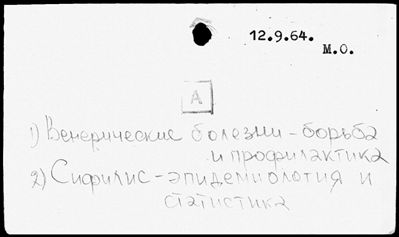 12.9.64.
М.О.
А
1) Венерические болезни - борьба
и профилактика
2) Сифилис - эпидемиология и
статистика